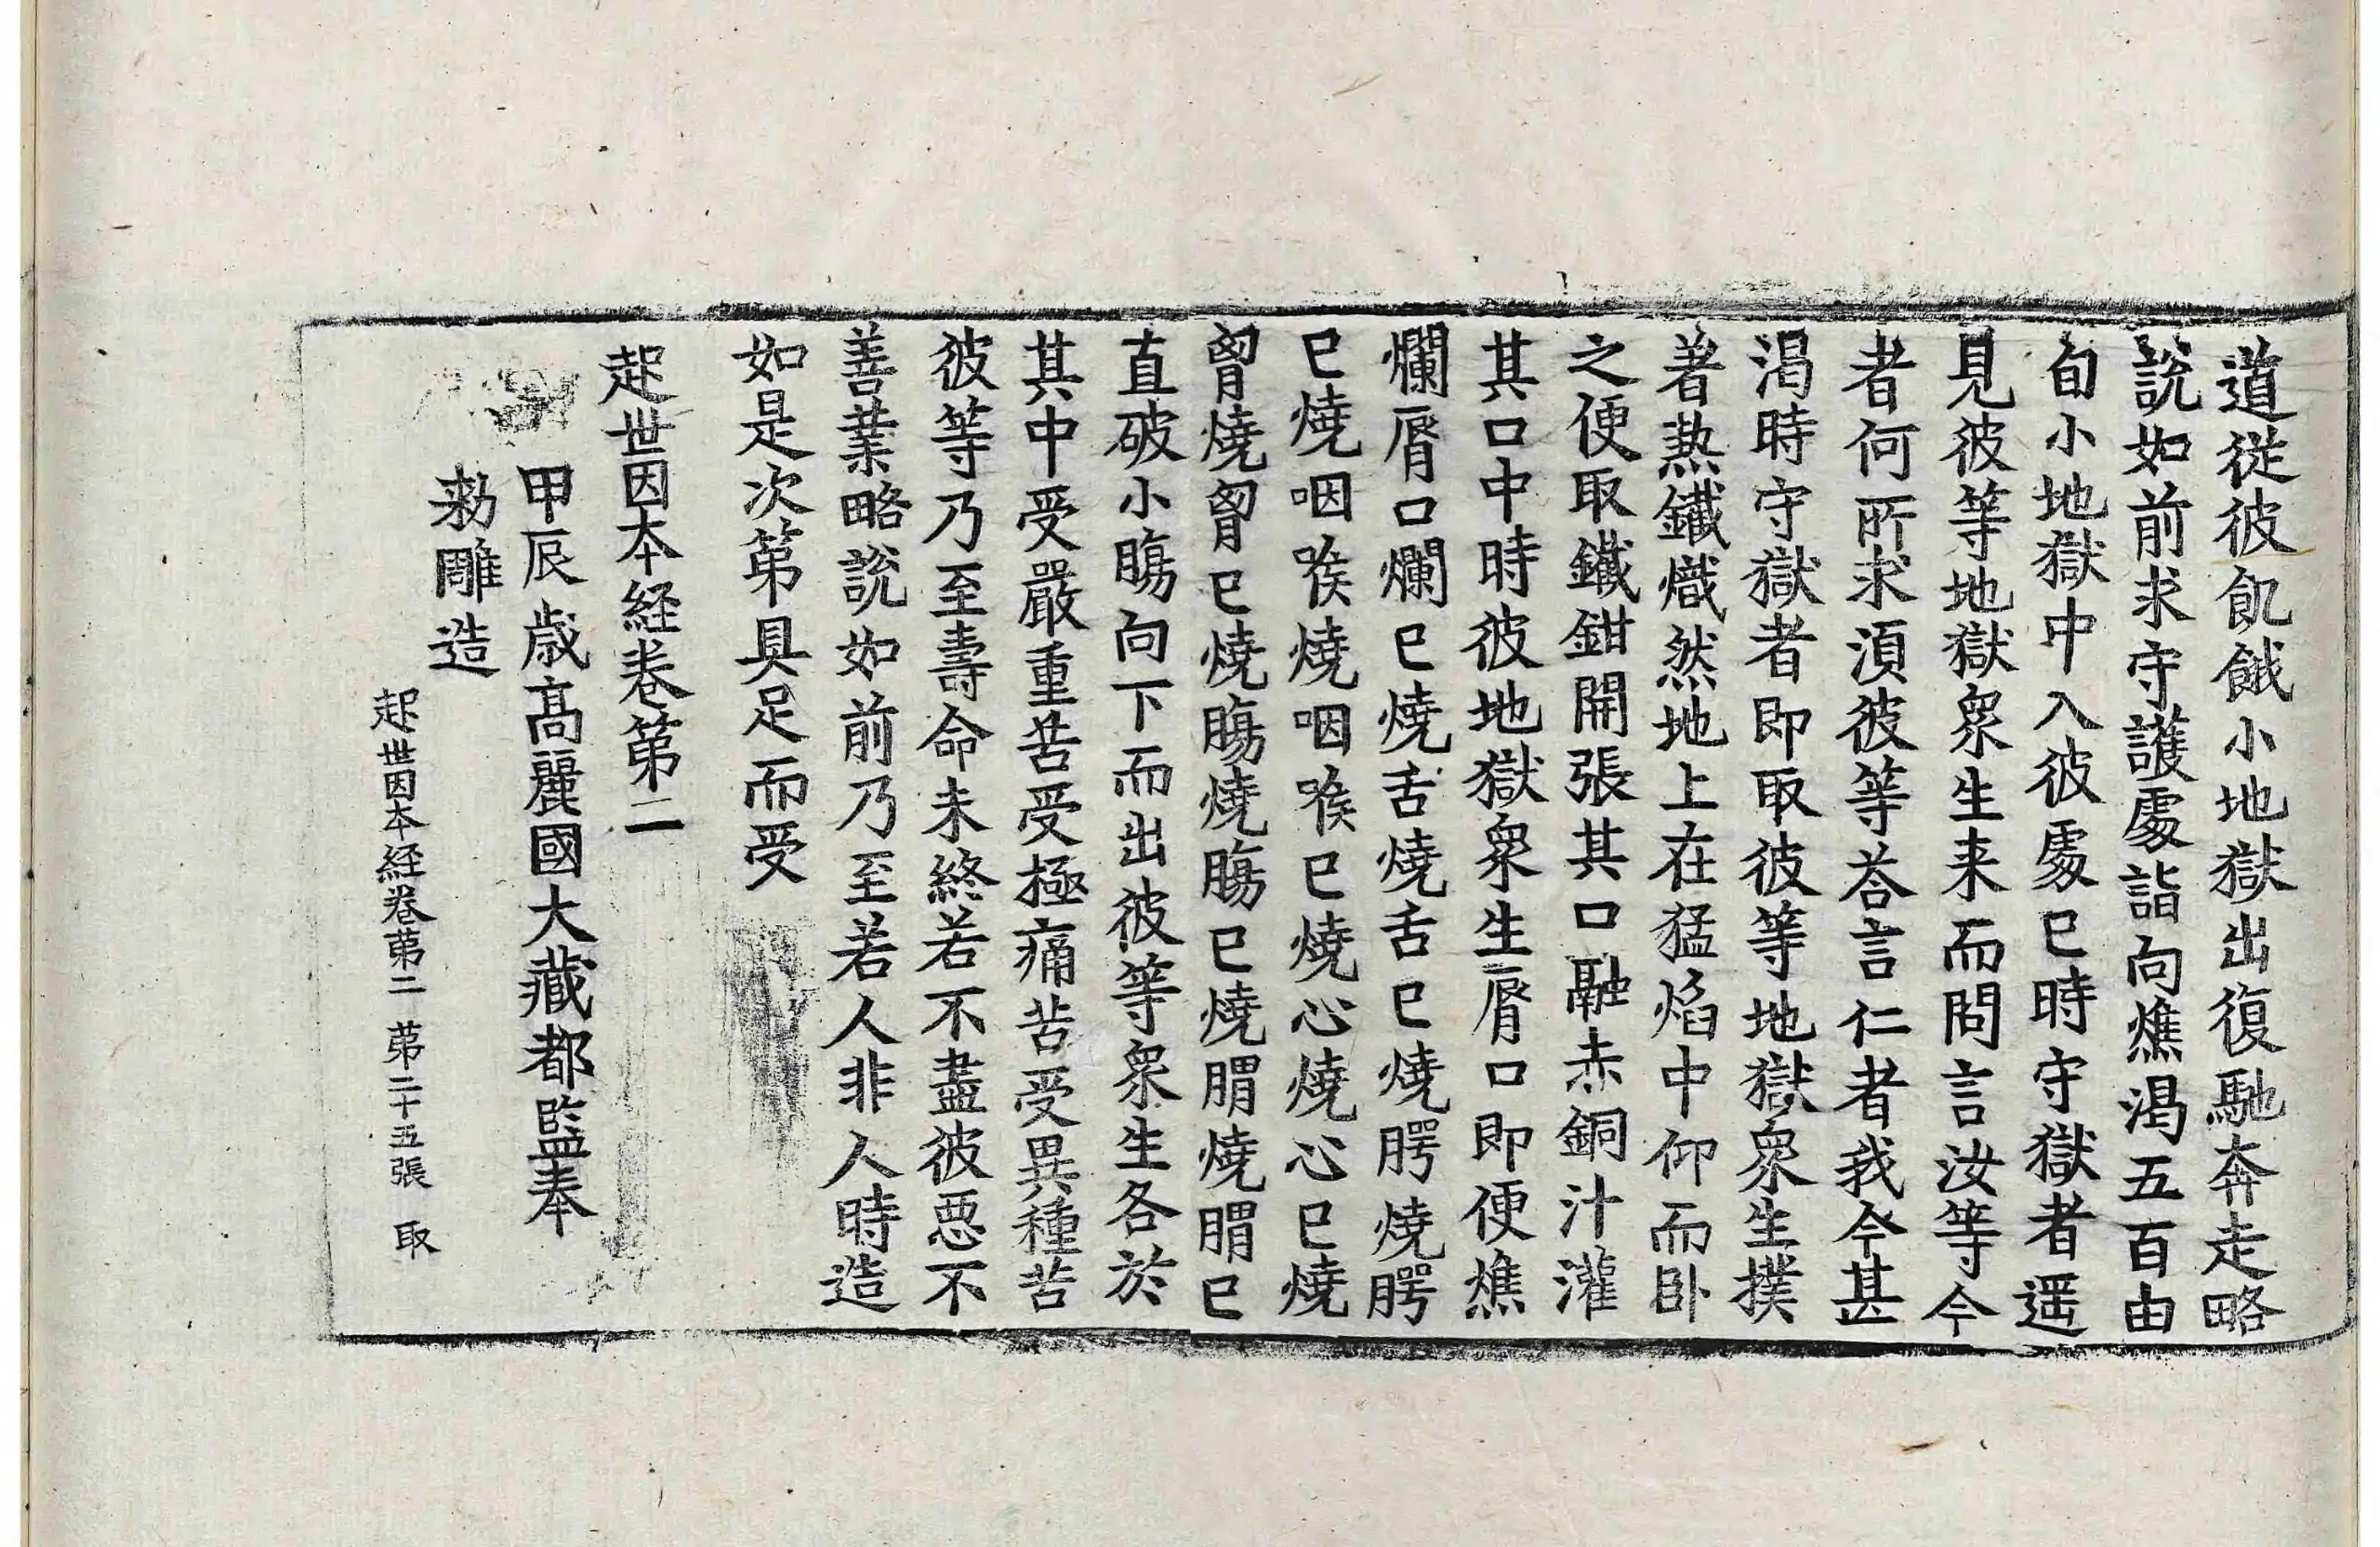 道從彼飢餓小地獄出復馳奔走略
說如前求守護處詣向燋渴五百由
旬小地獄中入彼處已時守獄者遥
見彼等地獄衆生来而問言汝等今
者何所求湏彼等荅言仁者我今甚
渴時守獄者即取彼等地獄衆生撲
著熱鐵熾然地上在猛焰中仰而臥
之便取鐵鉗開張其口融赤銅汁灌
其口中時彼地獄衆生脣口即便燋
爛脣口爛已燒舌燒舌已燒腭燒腭
已燒咽喉燒咽喉已燒心燒心已燒
胷燒胷已燒膓燒膓已燒胃燒胃已
直破小膓向下而出彼等衆生各於
其中受嚴重苦受極痛苦受異種苦
彼等乃至壽命未終若不盡彼惡不
善業略說如前乃至若人非人時造
如是次第具足而受
起世因本経卷第二
甲辰歳髙麗國大藏都監奉
勑雕造
起世因本経卷第二 第二十五張 取